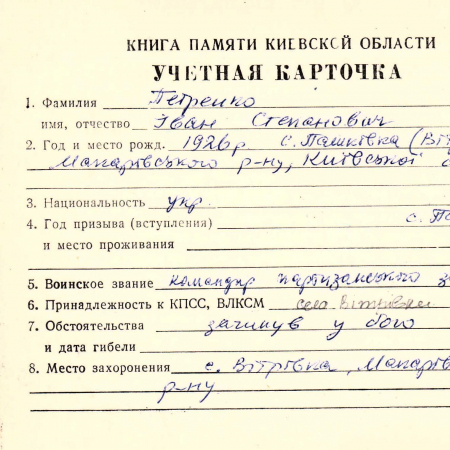 КНИГА ПАМЯТИ КИЕВСКОЙ ОБЛАСТИ
УЧЕТНАЯ КАРТОЧКА
1. Фамилия Петренко
имя, отчество Іван Степанович
2. Год и место рожд. 1926 р с. Пашківка (
Макарівського р-ну, Київської
3. Национальность укр.
4. Год призыва (вступления) с.
и место проживания
5. Воинское звание командир партизанського
6. Принадлежность к КПСС, ВЛКСМ села
7. Обстоятельства загинув у бою
и дата гибели
8. Место захоронения с. Вітрівка,
р-ну